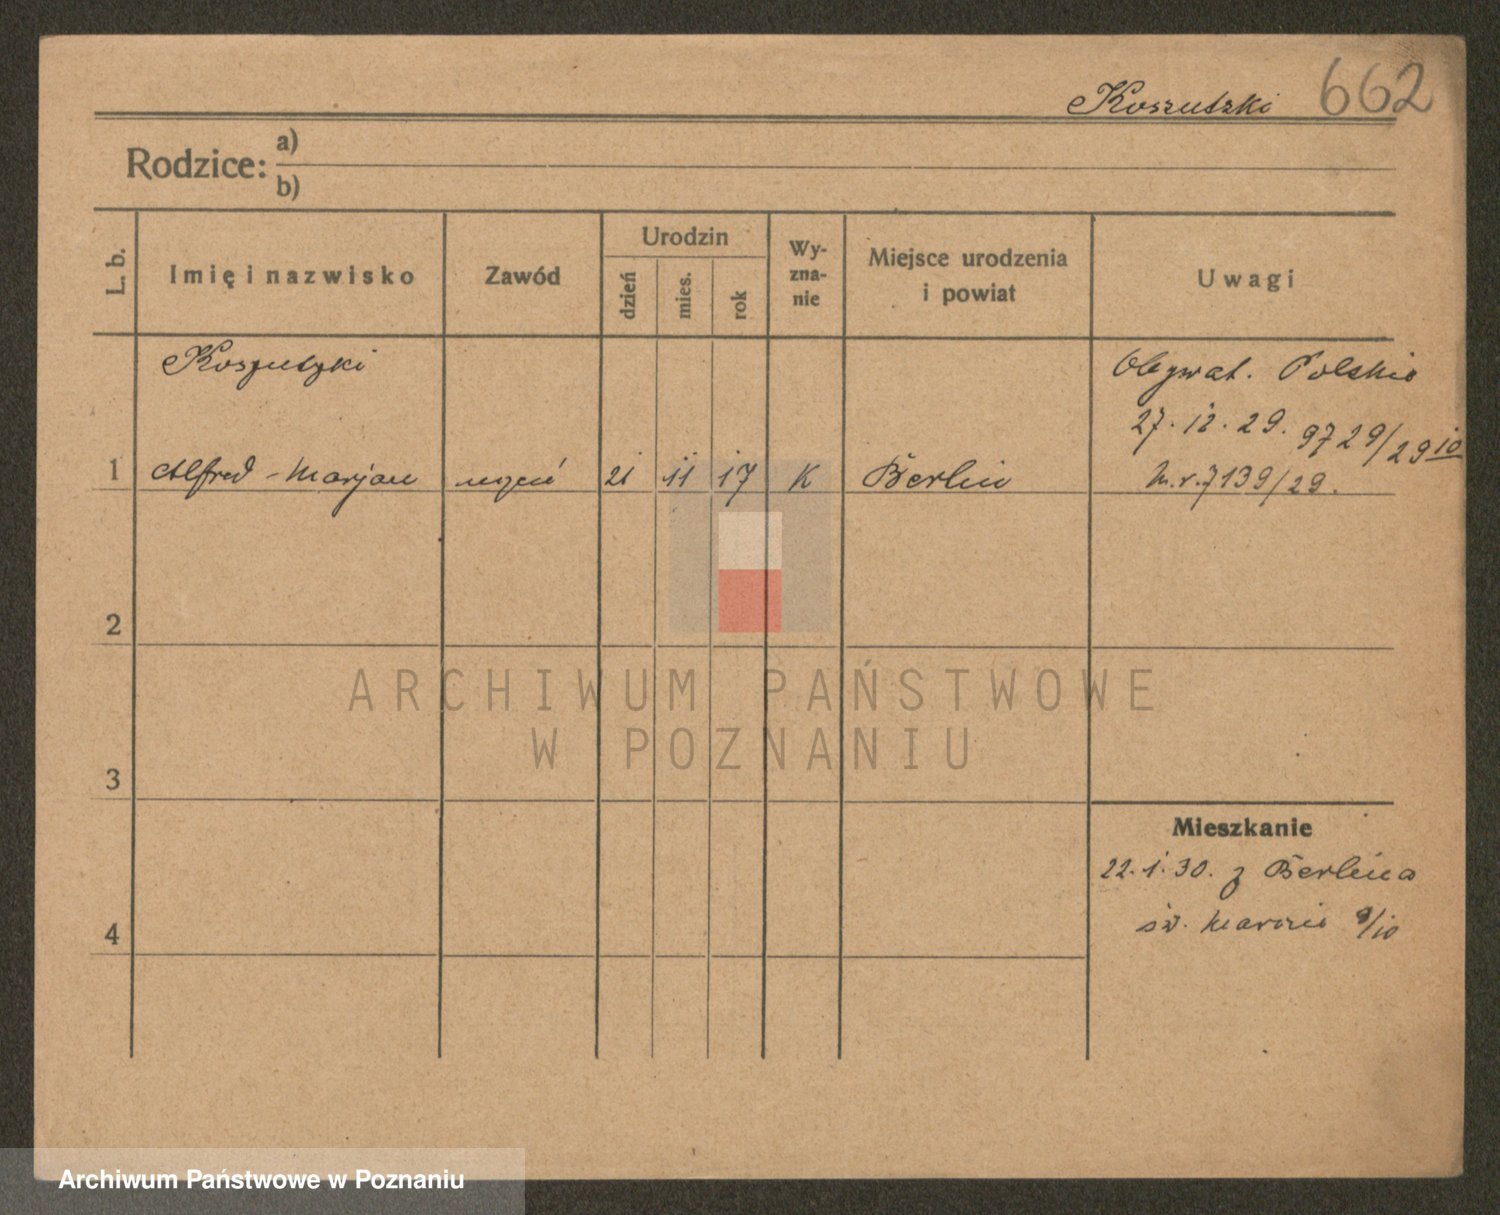 Koszutzki 662
Rodzice: a)
b)
L. b.
Imię i nazwisko
Zawód
Urodzin
dzień
mies.
rok
Wy-
zna-
nie
Miejsce urodzenia
i powiat
Uwagi
Koszutzki
Obywat. Polskie
27. 12. 29. 9729/29 10
1 Alfred - Marjan uczeń 21 11 17 K Berlin
M.r. 7139/29.
2
ARCHIWUM PAŃSTWOWE
W POZNANIU
3
Mieszkanie
22. 1. 30. z Berlina
4
św. Marcin 9/10
Archiwum Państwowe w Poznaniu